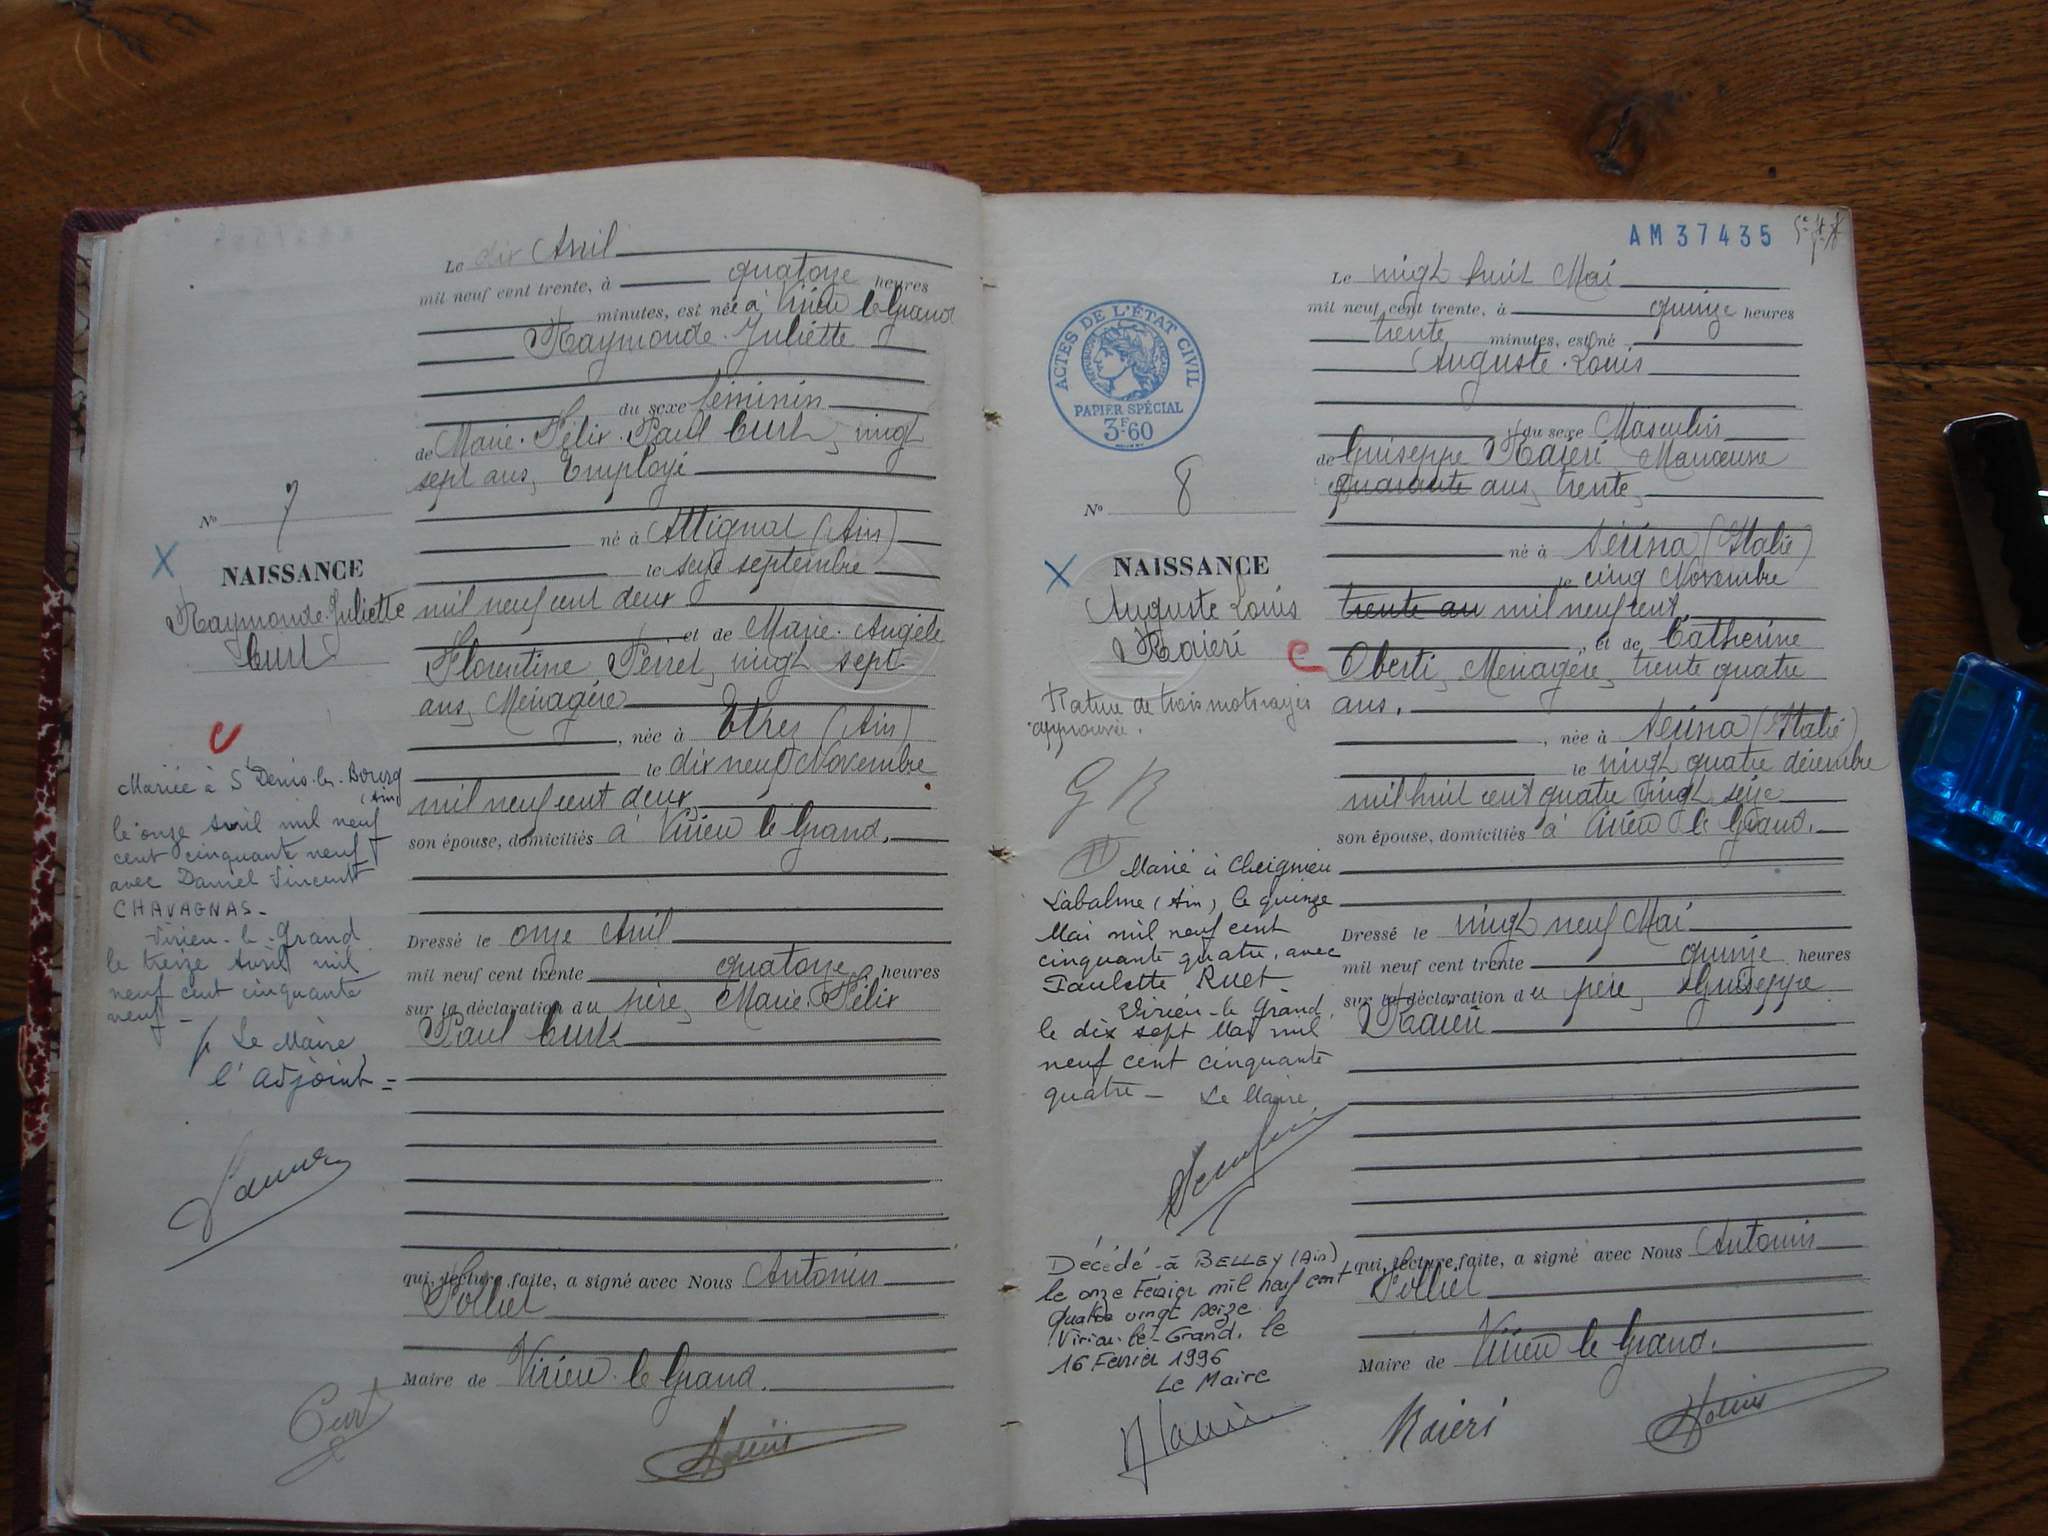 Le dix Avril
mil neuf cent trente, à quatorze heures
minutes, est née à Virieu le Grand
Raymonde Juliette
du sexe féminin
de Marie Félix Paul Curt, vingt
sept ans, Employé
né à Attignat (Ain)
le seize septembre
mil neuf cent deux
et de Marie Angèle
Florentine Perret, vingt sept
ans, Ménagère
, née à Etrez (Ain)
le dix neuf Novembre
mil neuf cent deux,
son épouse, domiciliés à Virieu le Grand.
Dressé le onze Avril
mil neuf cent trente quatorze heures
sur la déclaration du père, Marie Félix
Paul Curt
qui, lecture faite, a signé avec Nous Antonin
Maire de Virieu le Grand.
Curt
N° 7
NAISSANCE
Raymonde Juliette
Curt
Mariée à St Denis-les-Bourg
(Ain)
le onze Avril mil neuf
cent cinquante neuf
avec Daniel Vincent
CHAVAGNAS-
Virieu-le-Grand
le treize Avril mil
neuf cent cinquante
neuf-
p. Le Maire,
l'Adjoint-
AM37435
ACTES DE L'ÉTAT CIVIL
PAPIER SPÉCIAL
3F60
N° 8
NAISSANCE
Auguste Louis
Raieri
Rature de trois mots rayés
approuvée.
G R
Marié à Cheignieu
Labalme (Ain) le quinze
Mai mil neuf cent
cinquante quatre, avec
Paulette Ruet-
Virieu-le Grand,
le dix sept Mai mil
neuf cent cinquante
quatre- Le Maire,
Décédé à BELLEY (Ain)
le onze Février mil neuf cent
quatre vingt seize
Virieu-le-Grand. le
16 Février 1996
Le Maire
Le vingt huit Mai
mil neuf cent trente, à quinze heures
trente minutes, est né
Auguste Louis
du sexe Masculin
de Guiseppe Raieri Manœuvre
quarante ans, trente,
né à (Italie)
le cinq Novembre
trente au mil neuf cent,
, et de Catherine
Oberti, Ménagère, trente quatre
ans.
, née à (Italie)
le vingt quatre décembre
mil huit cent quatre vingt seize
son épouse, domiciliés à Virieu le Grand.
Dressé le vingt neuf Mai
mil neuf cent trente quinze heures
sur la déclaration du père, Guiseppe
Raieri
qui, lecture faite, a signé avec Nous Antonin
Maire de Virieu le Grand.
Raieri